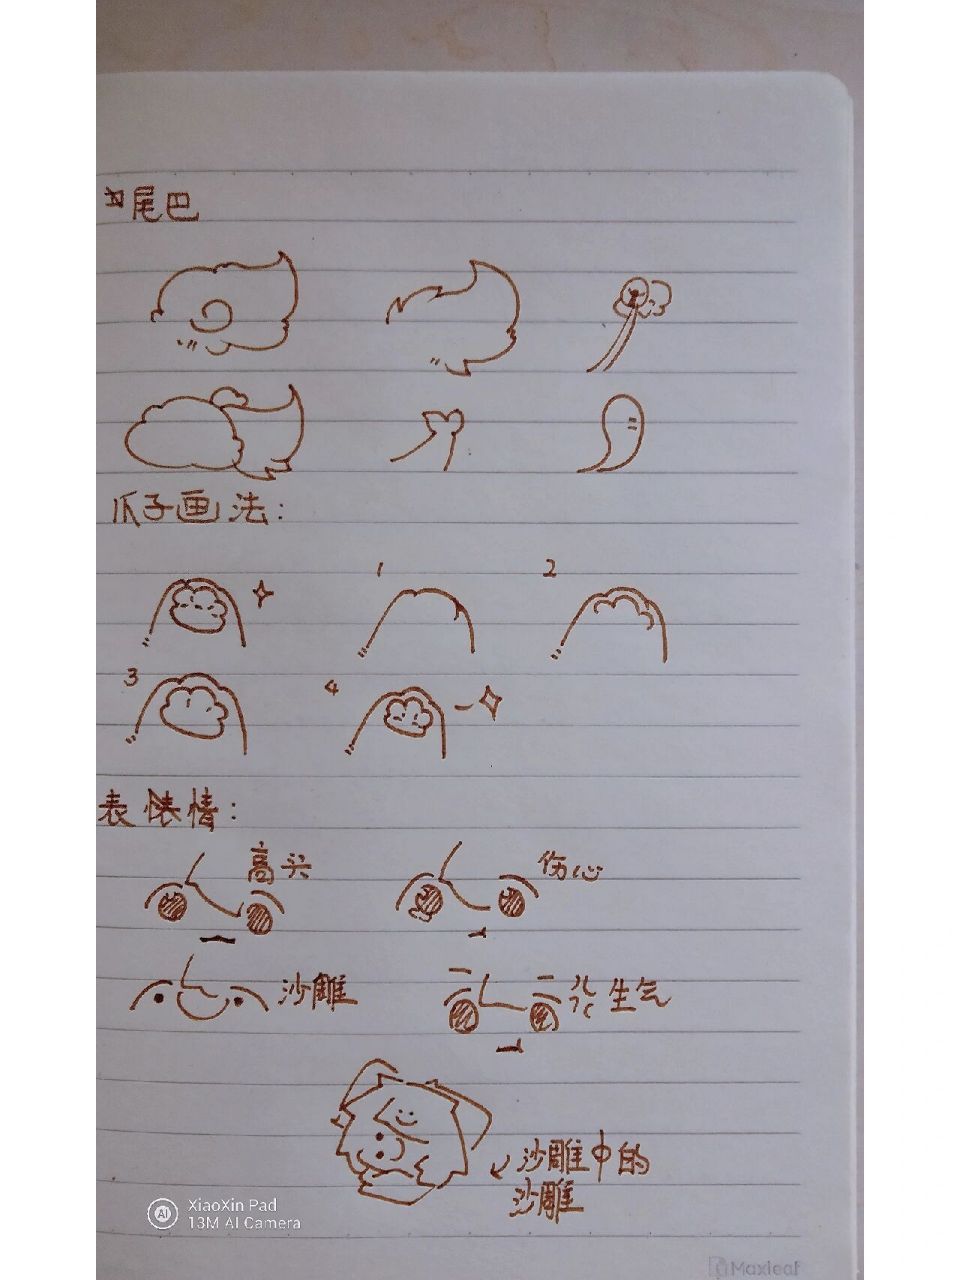 尾巴
爪子画法:
1
2
3
4
表情:
高兴
伤心
沙雕
生气
沙雕中的
沙雕
AI
XiaoXin Pad
13M AI Camera
Maxleaf